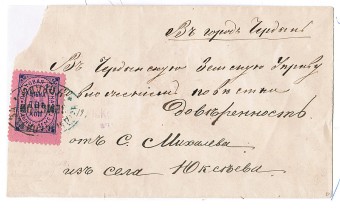 Въ городъ Чердынь
Въ Чердынскую Земскую Управу
повѣстки
Довѣренность
отъ С. Михалева
изъ села Юксѣева